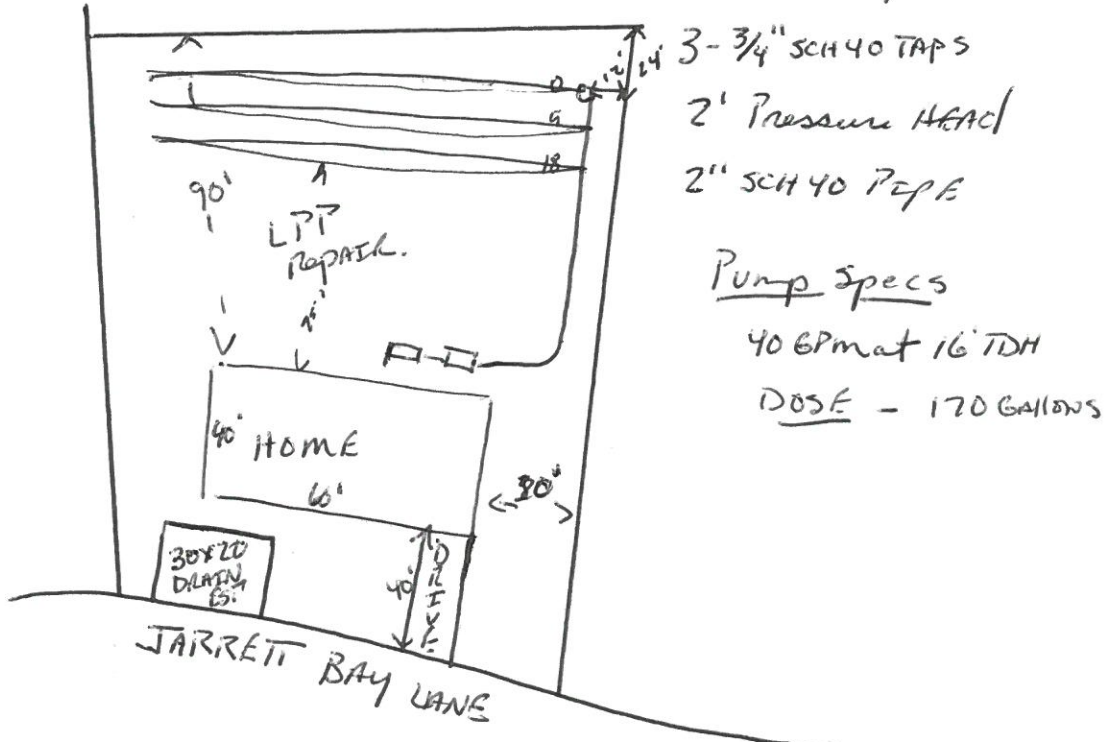 3-3/4" SCH 40 TAPS
2' Pressure HEAd
2" SCH 40 PIPE
Pump Specs
40 GPM at 16' TDH
DOSE - 170 GAllONS
12'
24'
0
9
18
90'
LPP
RepAIR.
25'
40'
HOME
60'
30x20
DRAIN
EST
40'
DRIVE
JARRETT BAY LANE